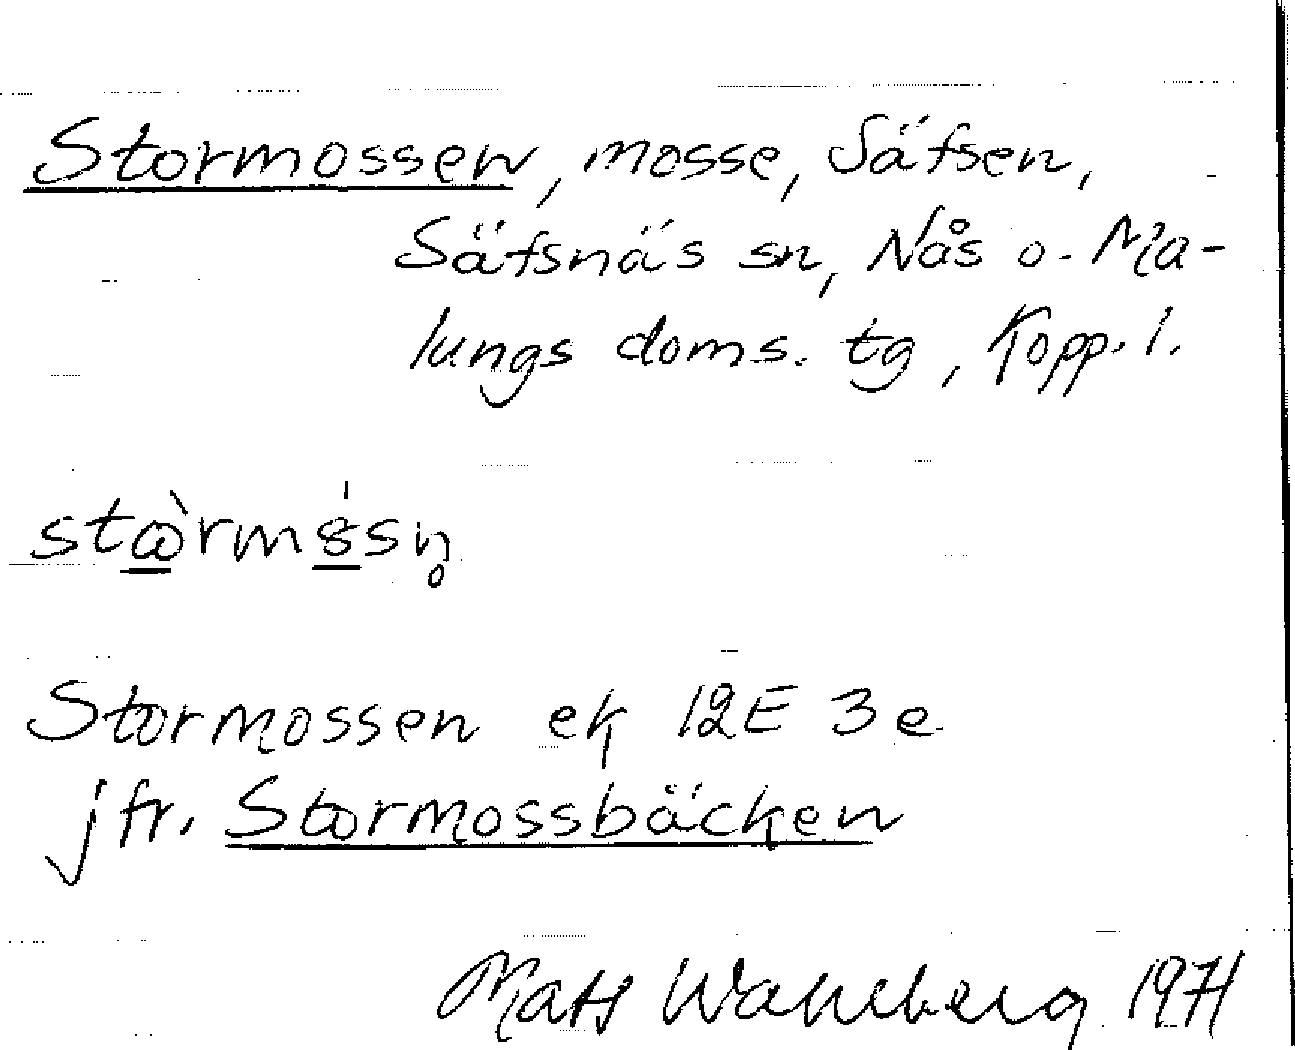 Stormossen, mosse, Säfsen,
Säfsnäs sn, Nås o. Ma-
lungs doms. tg, Kopp. l.
Stormossen ek 12E 3e
jfr. Stormossbäcken
Mats Wahlberg 1971